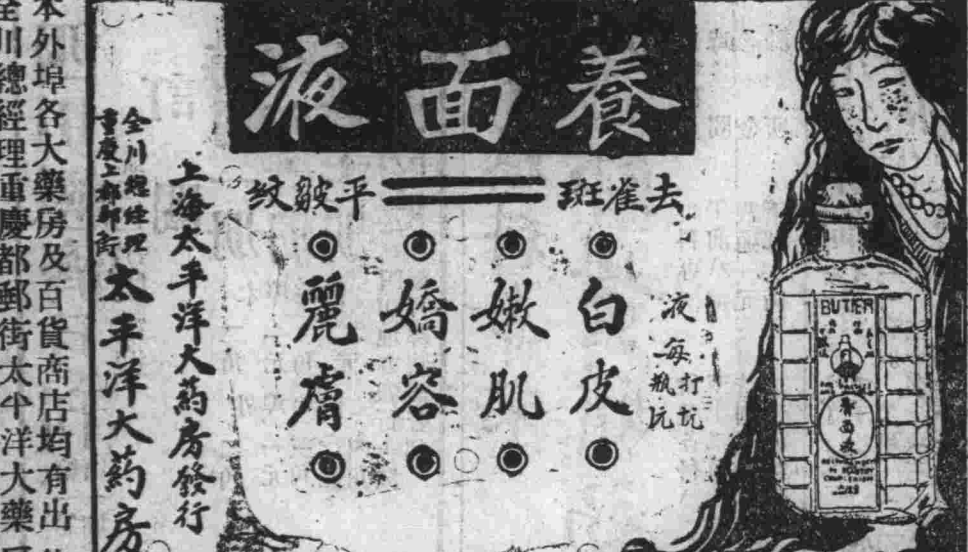 養面液
去雀斑
平皺紋
白皮
嫩肌
嬌容
麗膚
液
每打
瓶
BUTLER
養面液
上海太平洋大药房發行
全川總經理
重慶上都郵街
太平洋大药房
本外埠各大藥房及百貨商店均有出
全川總經理重慶都郵街太平洋大藥